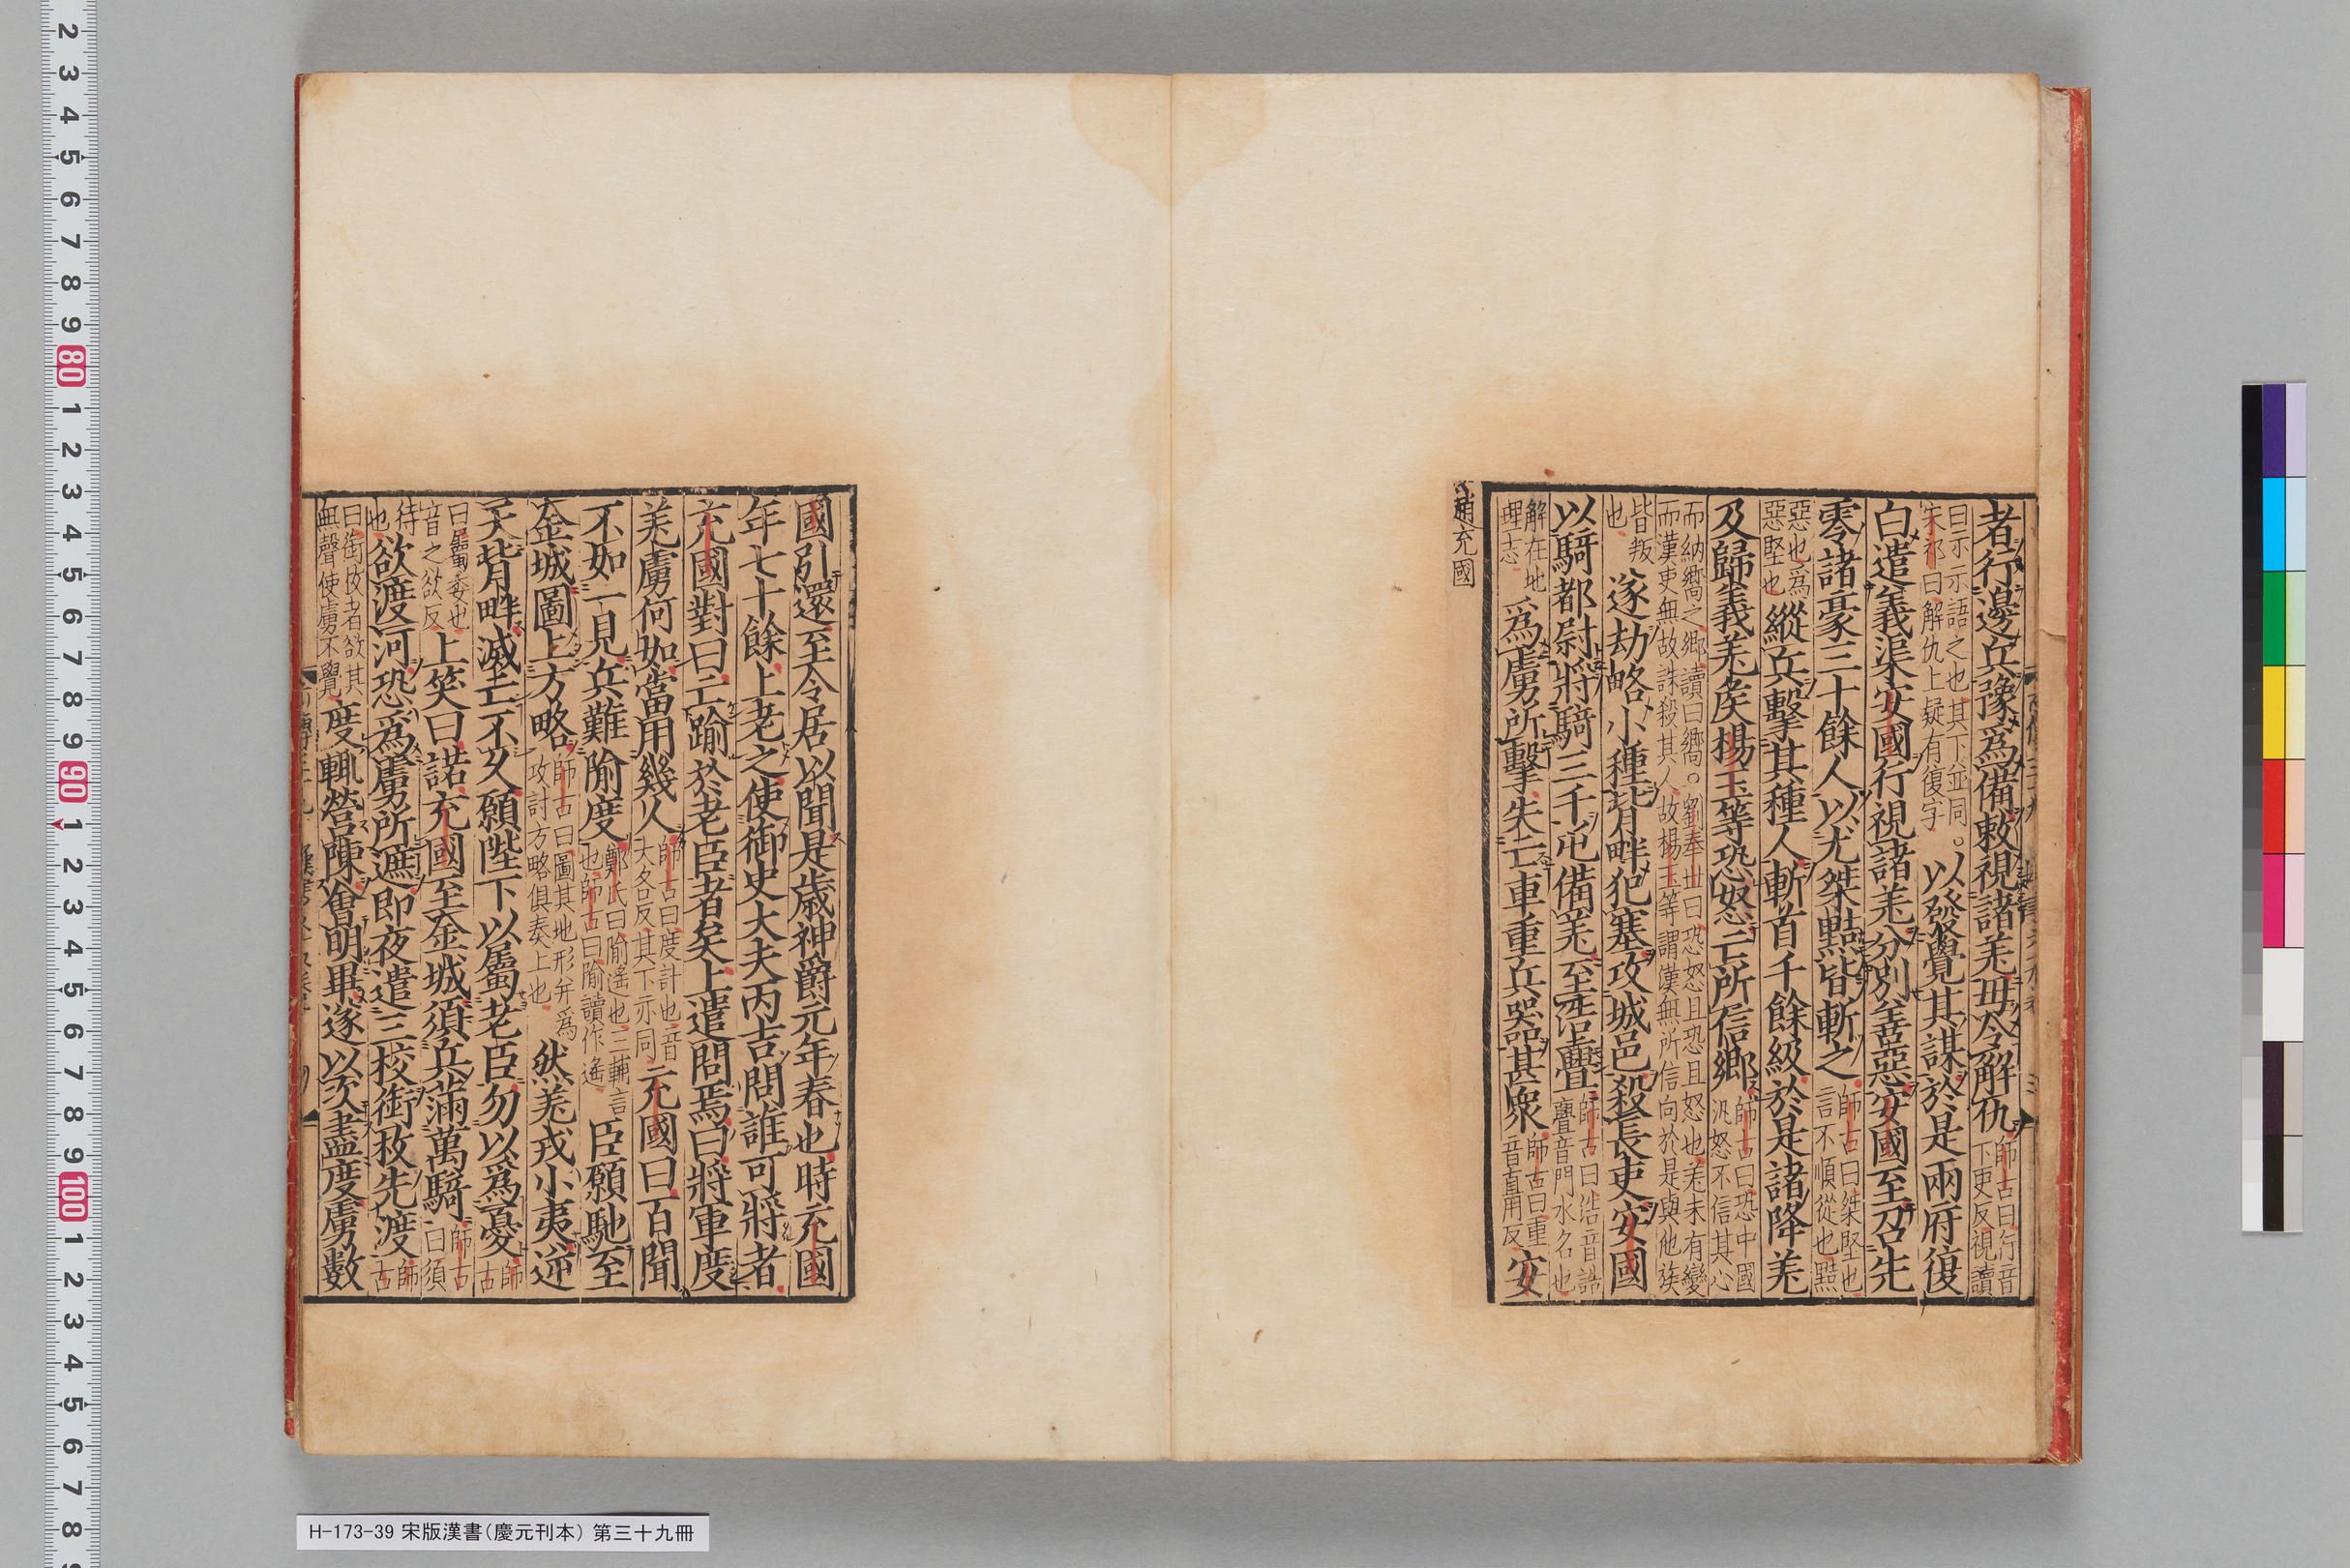 者行邊兵豫爲備敕視諸羌毋令解仇師古曰行音下更反視讀
曰示示語之也其下並同○宋祁曰解仇上疑有復字以發覺其謀於是兩府復
白遣義渠安國行視諸羌分別善惡安國至召先
零諸豪三十餘人以尤桀黠皆斬之師古曰桀堅也言不順從也黠
惡也爲惡堅也縱兵擊其種人斬首千餘級於是諸降羌
及歸義羌侯楊玉等恐怒亡所信鄉師古曰恐中國汎怒不信其心
而納嚮之鄉讀曰嚮○劉奉世曰恐怒且恐且怒也羌未有變而漢吏無故誅殺其人故楊玉等謂漢無所信向於是與他族
皆叛也遂劫略小種背畔犯塞攻城邑殺長吏安國
以騎都尉將騎三千屯備羌至浩亹師古曰浩音誥亹音門水名也
解在地理志爲虜所擊失亡車重兵器甚衆師古曰重音直用反安
趙充國
國引還至令居以聞是歲神爵元年春也時充國
年七十餘上老之使御史大夫丙吉問誰可將者
充國對曰亡踰於老臣者矣上遣問焉曰將軍度
羌虜何如當用幾人師古曰度計也音大各反其下亦同充國曰百聞
不如一見兵難隃度鄭氏曰隃遙也三輔言也師古曰隃讀作遙臣願馳至
金城圖上方略師古曰圖其地形幷爲攻討方略俱奏上也然羌戎小夷逆
天背畔滅亡不久願陛下以屬老臣勿以爲憂師古
曰屬委也音之欲反上笑曰諾充國至金城須兵滿萬騎師古曰須
待也欲渡河恐爲虜所遮即夜遣三校銜枚先渡師古
曰銜枚者欲其無聲使虜不覺度輒營陳會明畢遂以次盡度虜數
H-173-39 宋版漢書(慶元刊本) 第三十九冊